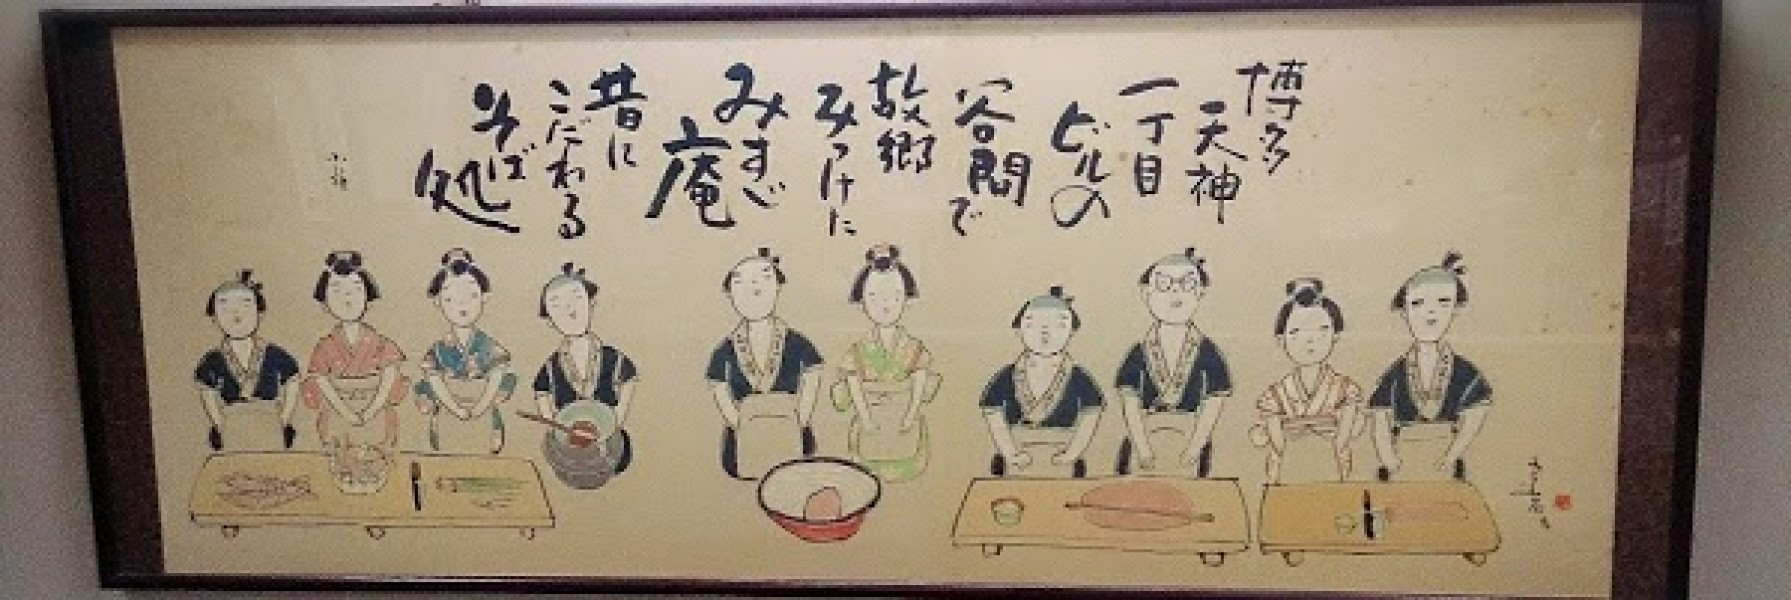 博多
天神
一丁目
ビルの
谷間で
故郷
みつけた
みすゞ
庵
昔に
こだわる
そば
処